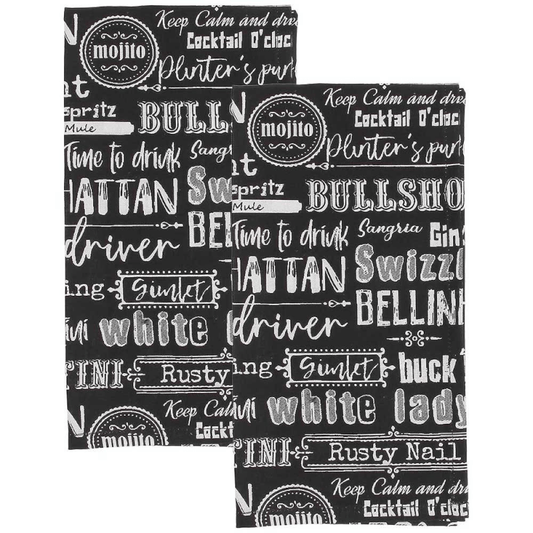 Keep Calm and dri
mojito
Cocktail O'cloc
Plinter's pur
spritz
Mule
BULLSH
Time to drink
Sangr
HATTAN
Swi
driver
BELLI
ing
Gimlet
ini
white
TINI
Rusty
Keep Cal
mojito
Cockt
Keep Calm and dre
mojito
Cocktail O'cloc
Plinter's pur
spritz
Mule
BULLSHO
Time to drink
Sangria
Gin
HATTAN
Swizzl
driver
BELLIN
ing
Gimlet
buck'
ini
white lady
TINI
Rusty Nail
Keep Calm and dri
mojito
Cocktail O'cloc